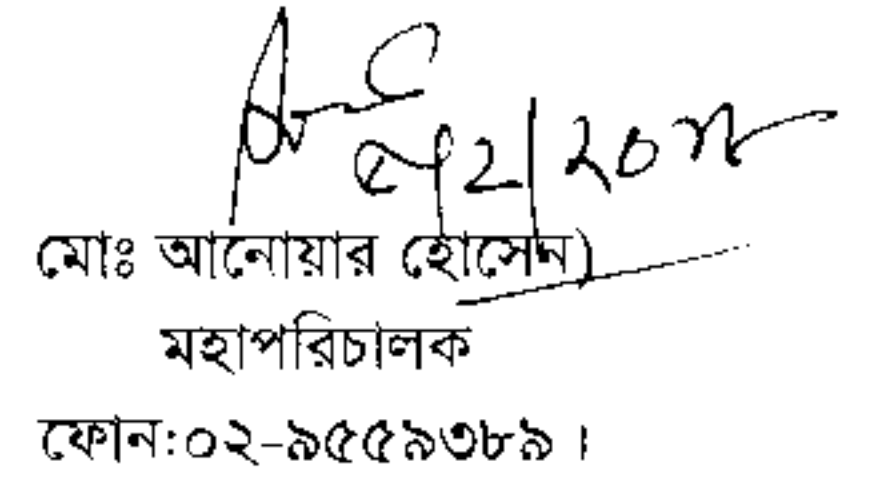 মোঃ আনোয়ার হোসেন)
মহাপরিচালক
ফোন:০২-৯৫৫৯৩৮৯।